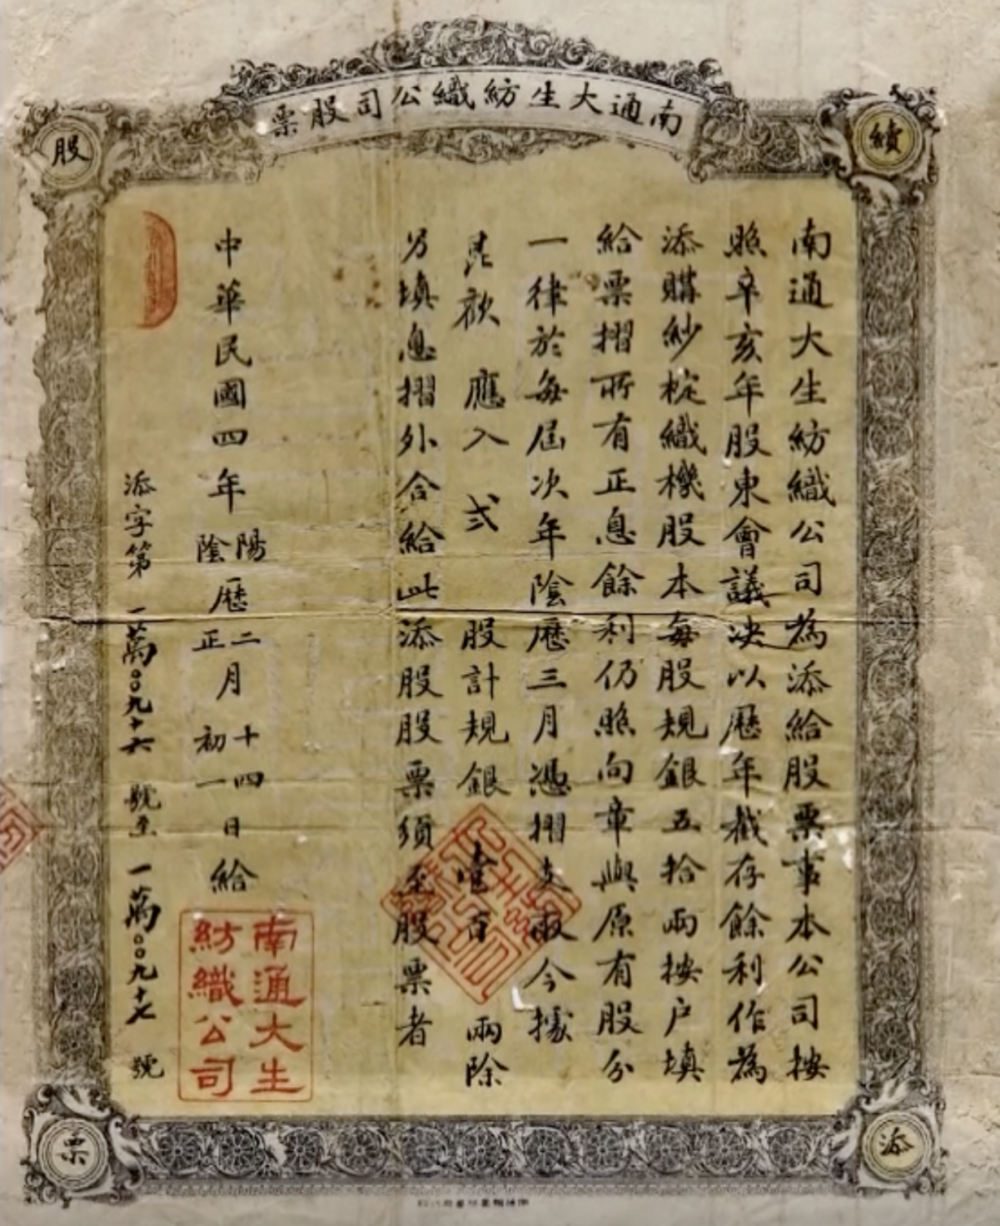 南通大生紡織公司股票
續
添
股
票
南通大生紡織公司為添給股票事本公司按
照辛亥年股東會議決以歷年截存餘利作為
添購紗椗織機股本每股規銀五拾兩按户填
給票摺所有正息餘利仍照向章與原有股分
一律於每屆次年陰歷三月憑摺支取今據
應入 弍 股計規銀 壹百 兩除
另填息摺外合給此添股股票須至股票者
中華民國四年陽陰歷二正月十四初一日給
添字第一萬〇〇九十六號至一萬〇〇九十七號
南通大生
紡織公司